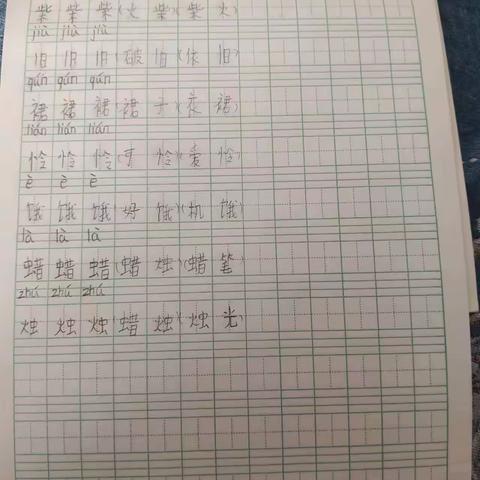 柴 柴 柴(火 柴)(柴 火)
jiù jiù jiù
旧 旧 旧(破 旧)(依 旧)
qún qún qún
裙 裙 裙(裙 子)(衣 裙)
lián lián lián
怜 怜 怜(可 怜)(爱 怜)
è è è
饿 饿 饿(好 饿)(饥 饿)
là là là
蜡 蜡 蜡(蜡 烛)(蜡 笔)
zhú zhú zhú
烛 烛 烛(蜡 烛)(烛 光)